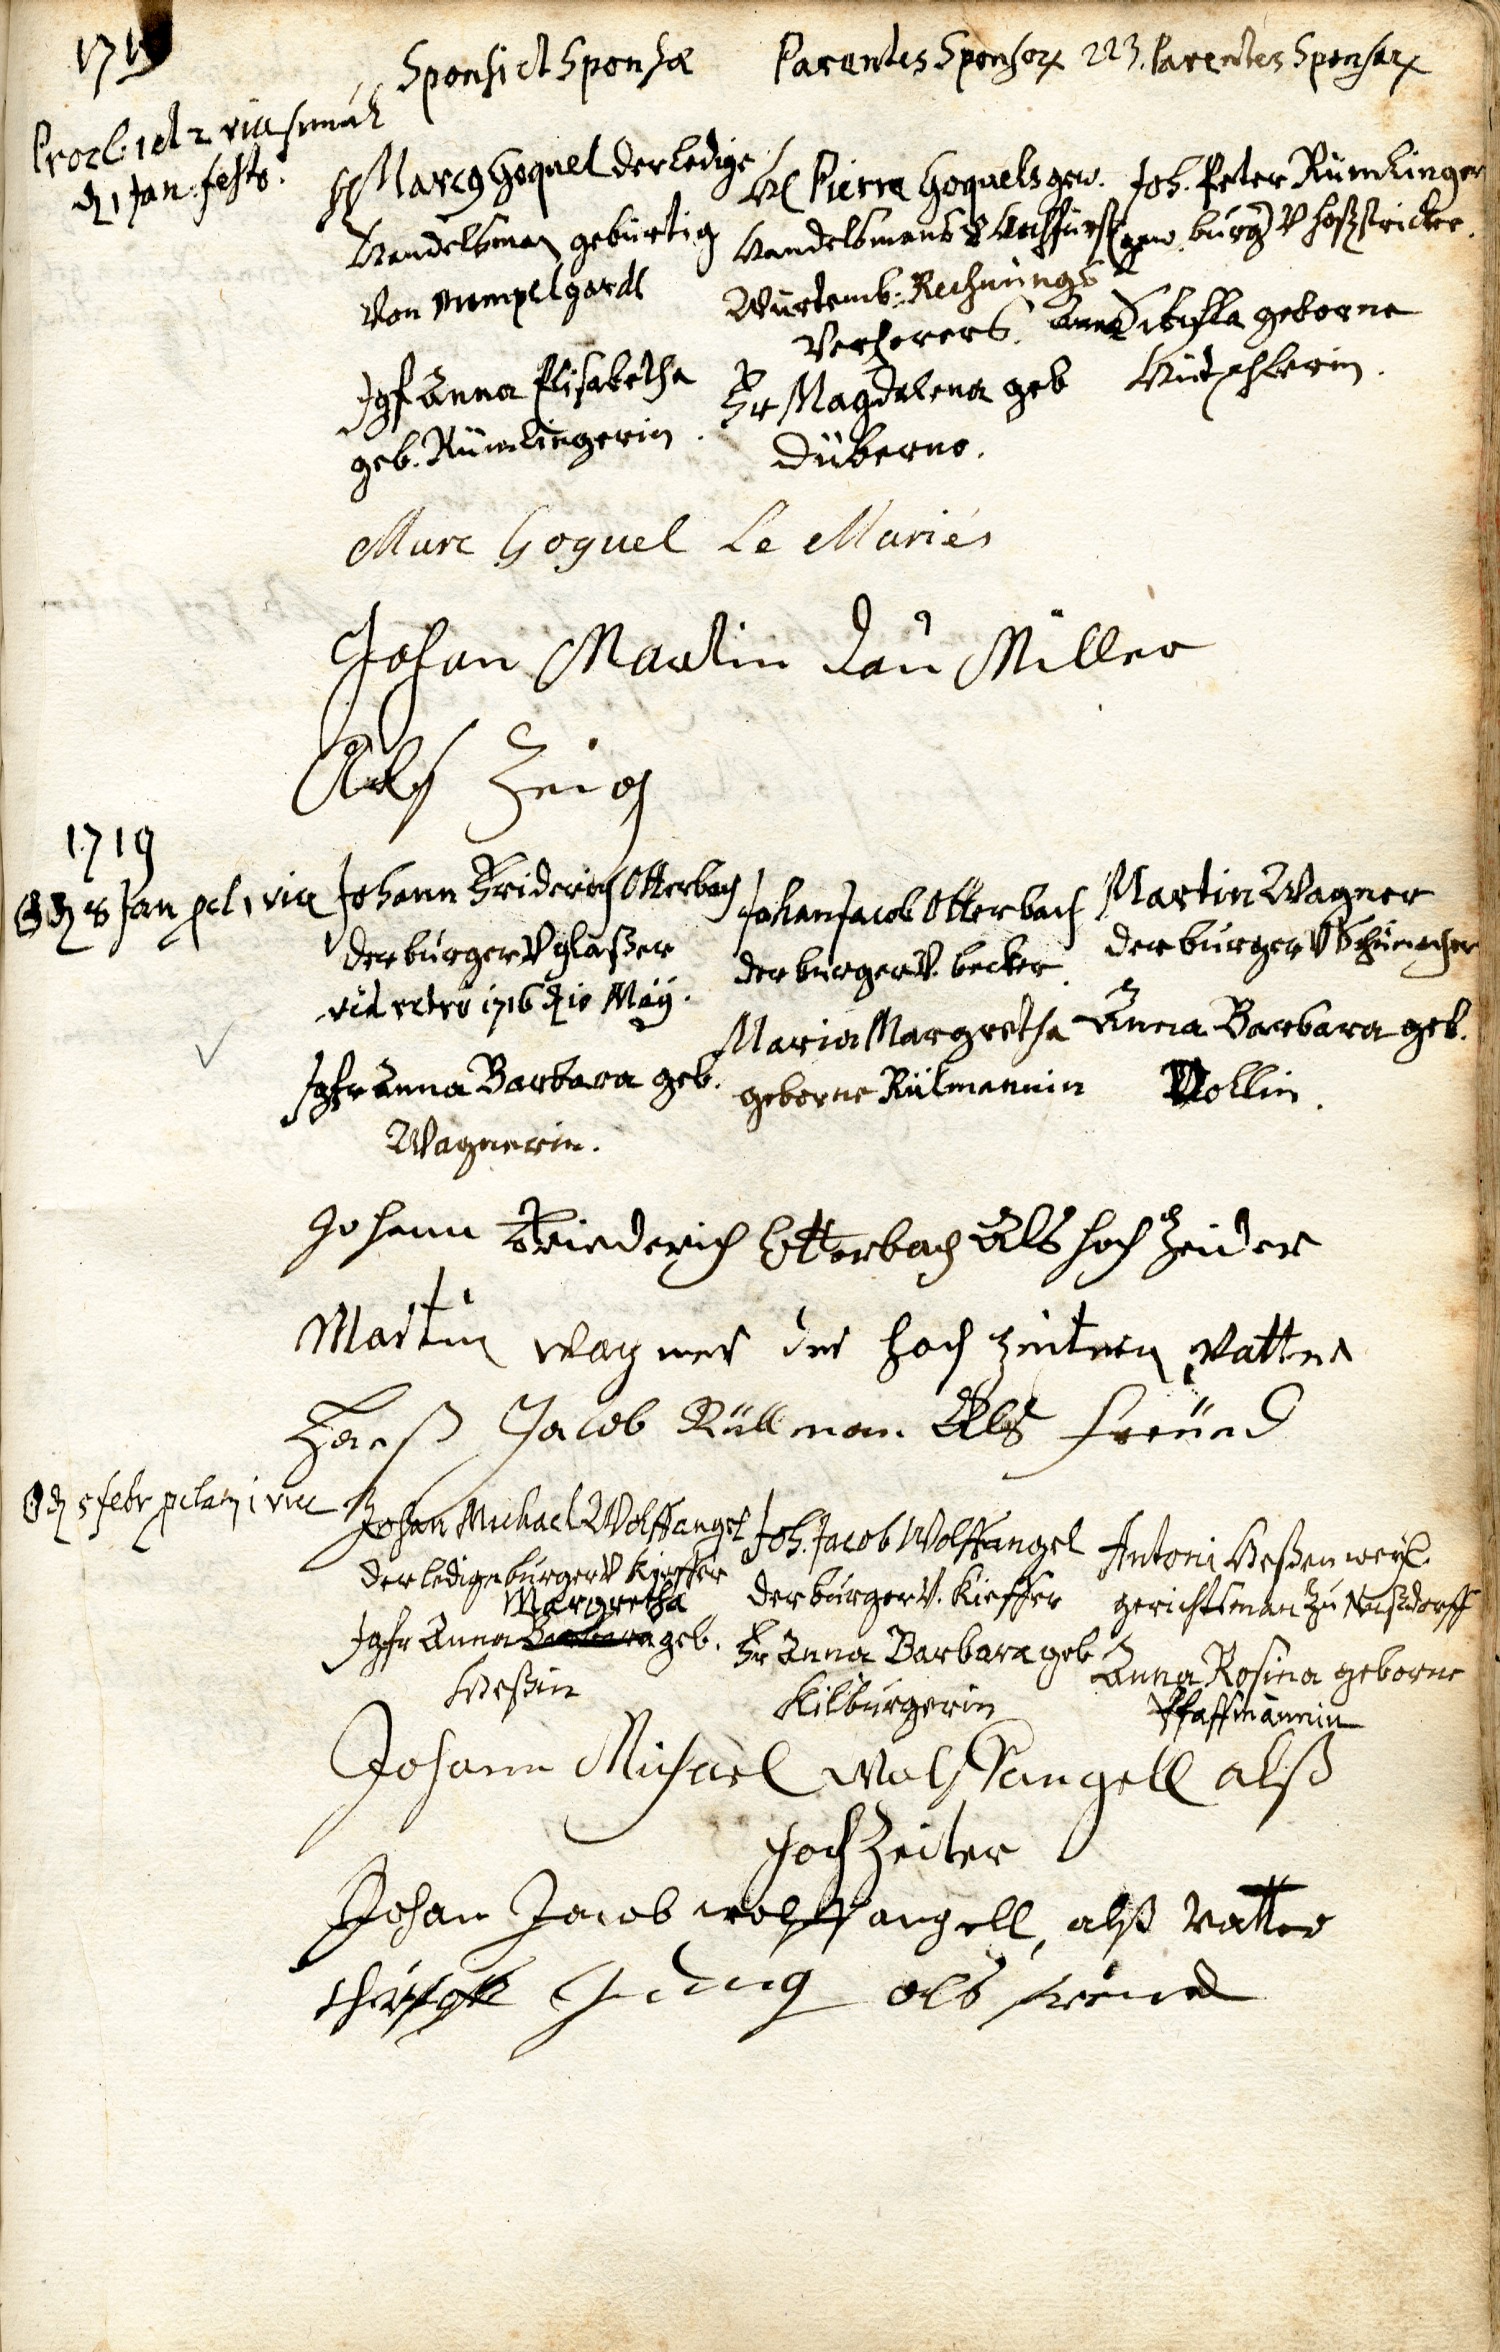 1719
Sponsi et Sponsæ
Parentes Sponsor. 223. Parentes Sponsar.
Procl. 1 et 2 vice simul
d. 1 Jan. festo.
H Marcg Goguel der ledige
Handelsman gebürtig
von Mumpelgardt
Jgf Anna Elisabetha
geb. Rümlingerin.
H Pierre Goguels gew.
Handelsmans
Würtemb. Rechnungs
Verhörers.
Fr Magdalena geb
Düberno.
Joh. Peter Rümlinger
gew. burger V hoßstricker.
Anna Sibilla geborne
Marc Goguel Le Mariés
Johan Martin Daü Miller
Als Zeig
1719
d 8 Jan pcl 1 vice
Johann Friderich Otterbach
der burger V glaßer
vid retro 1716 d 10 Maÿ.
Jgfr Anna Barbara geb.
Wagnerin.
Johan Jacob Otterbach
der burger V. becker.
Maria Margretha
geborne Rülmannin
Martin Wagner
der burger V Schumacher
Anna Barbara geb.
Vollin.
Johann Friederich Otterbach Als hoch Zeider
Martin wagner der hoch zeitern vatter
Hanß Jacob Rüllman Als freünd
d 5 febr pclam 1 vice
Johan Michael Wolffangel
der ledige burger V Kieffer
Margretha
Jgfr Anna Barbara geb.
Heßin
Joh. Jacob Wolffangel
der burger V. Kieffer
Fr Anna Barbara geb
Kilburgerin
Antoni Heßen weÿl.
gerichtsman zu Nußdorff
Anna Rosina geborne
Pfaffmännin
Johann Michael Wolffangell alß
Hoch Zeiter
Johan Jacob wolffangell, alß Vatter
als freind